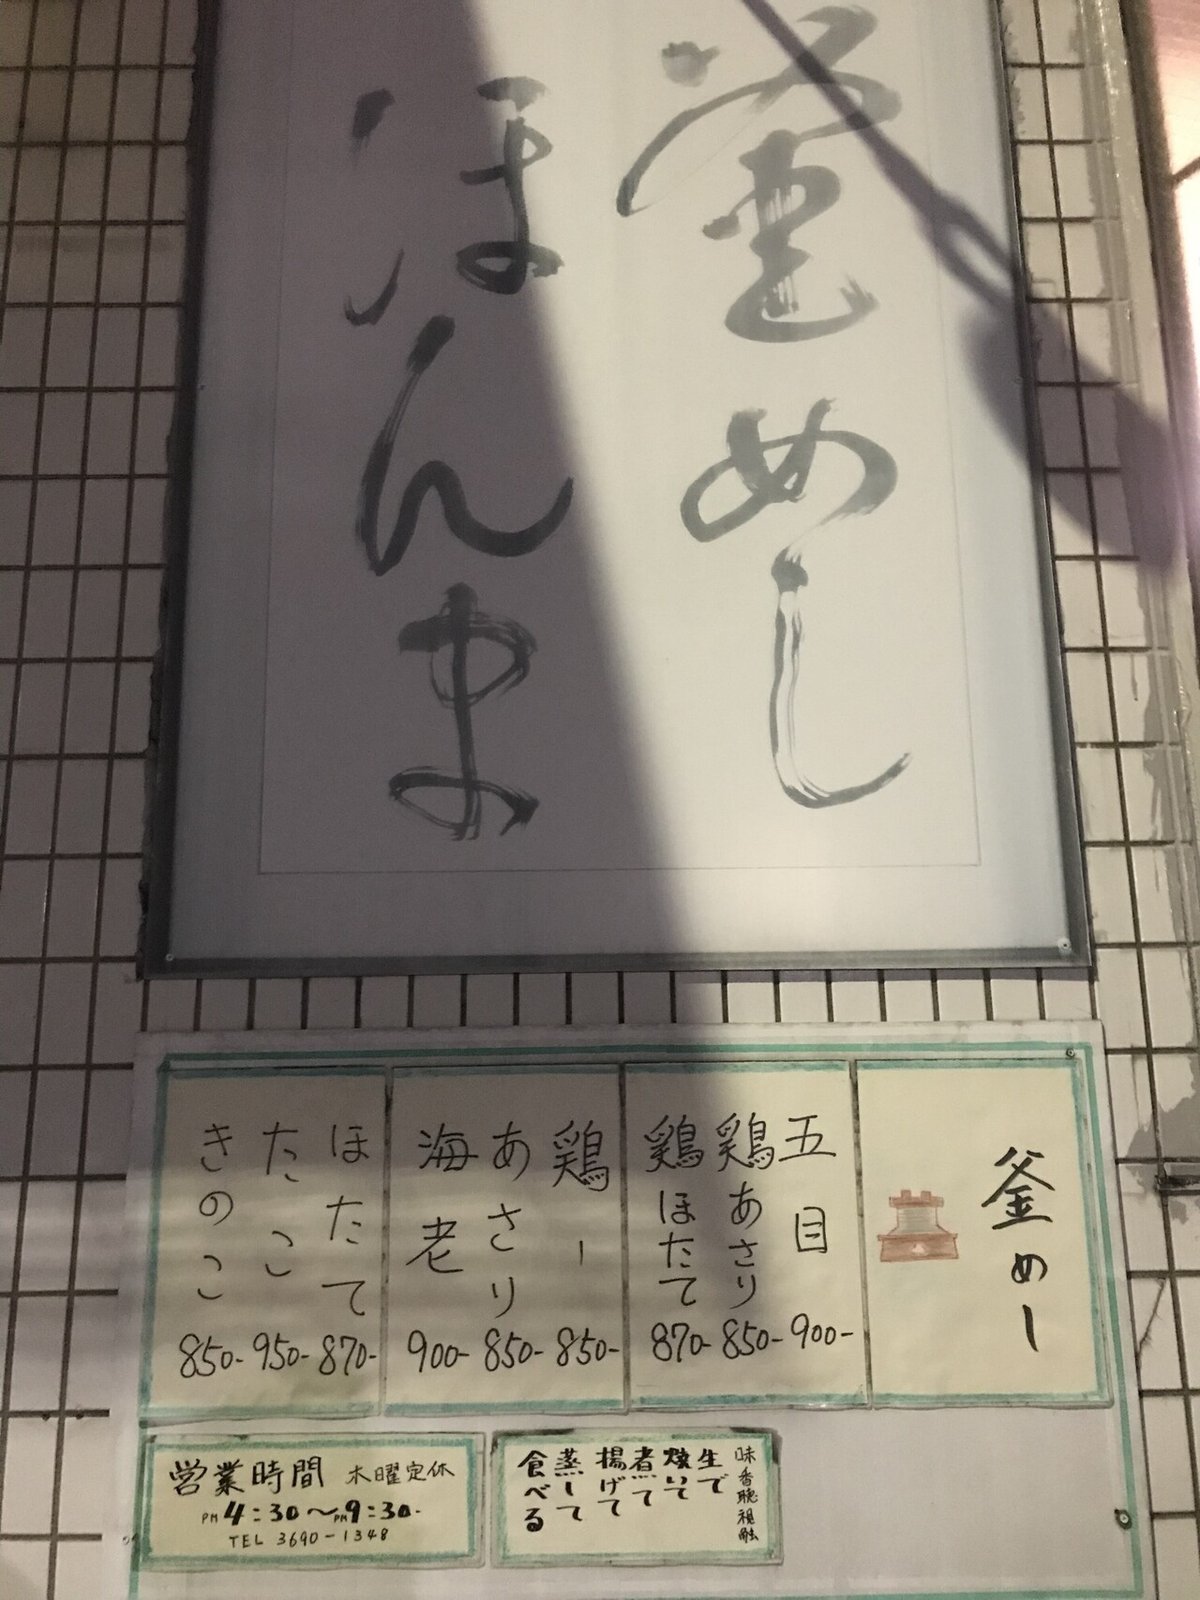 釜めし
ほんま
釜めし
五目 900-
鶏あさり 850-
鶏ほたて 870-
鶏ー 850-
あさり 850-
海老 900-
ほたて 870-
たこ 950-
きのこ 850-
営業時間 木曜定休
PM4:30〜PM9:30-
TEL 3690-1348
味香聴視触
生で
焼いて
煮て
揚げて
蒸して
食べる